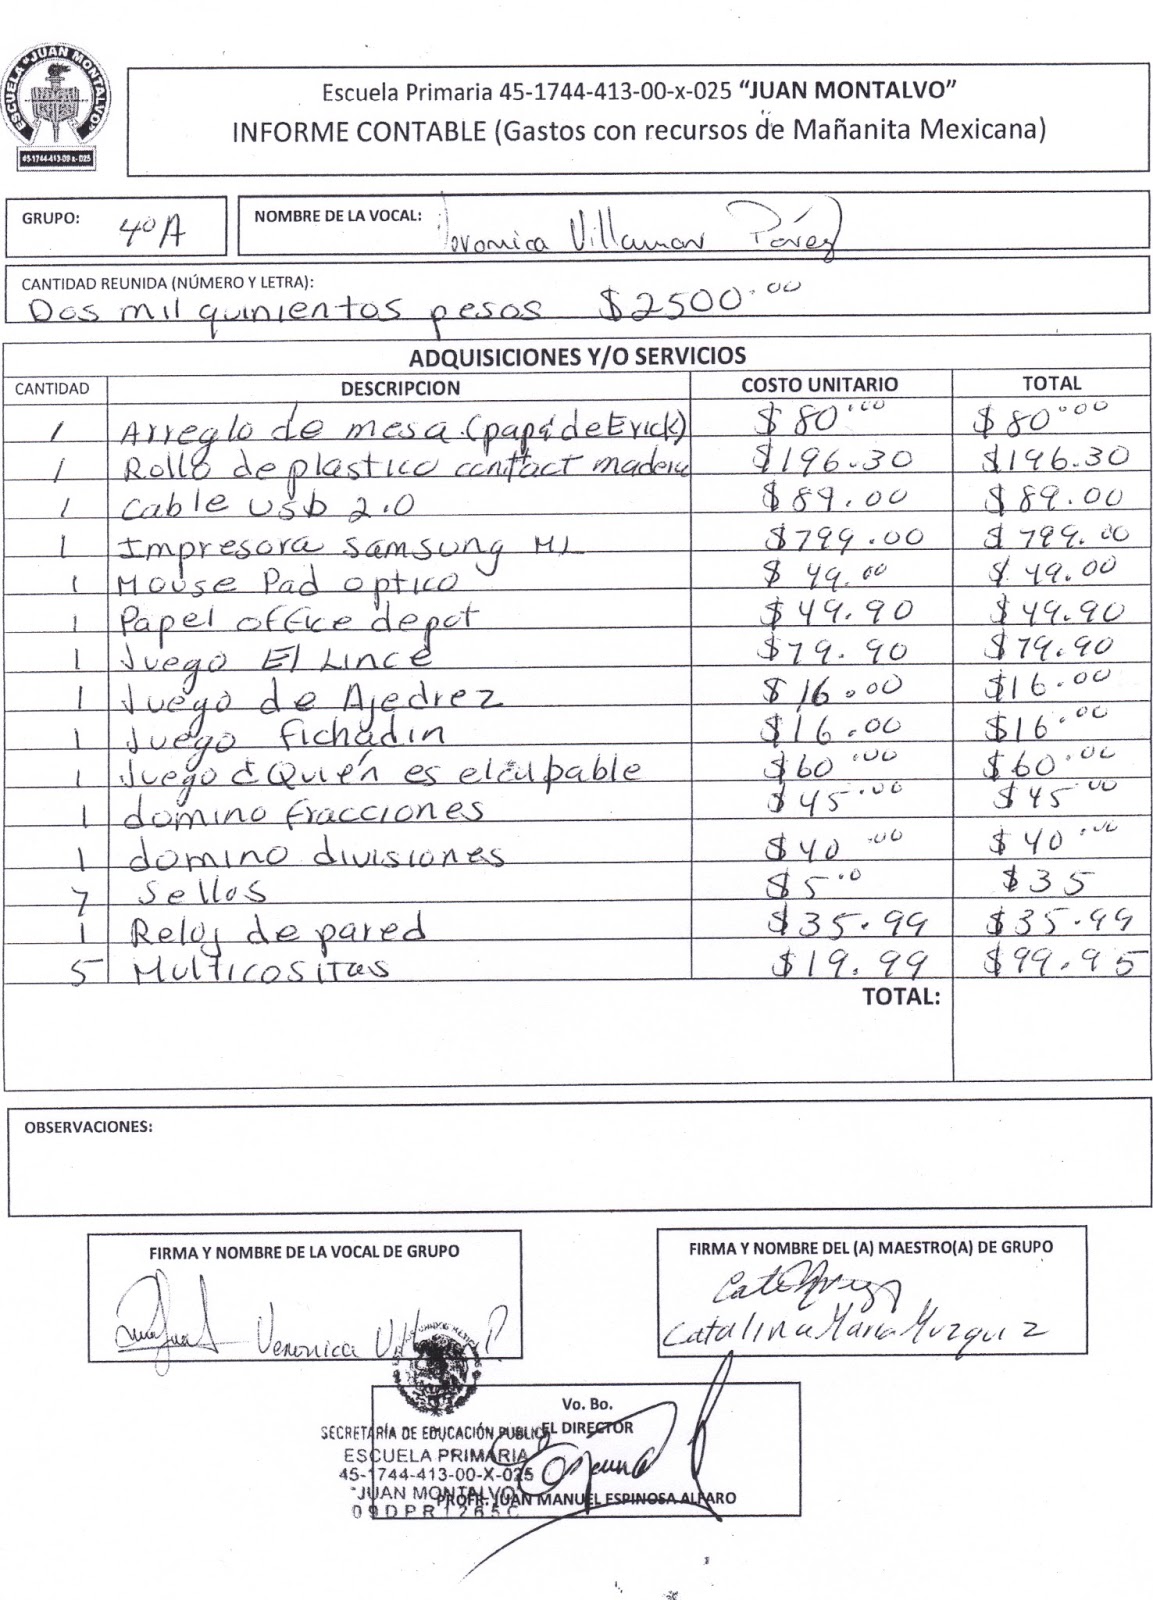 ESCUELA "JUAN MONTALVO"
45-1744-413-00-x-025
Escuela Primaria 45-1744-413-00-x-025 “JUAN MONTALVO”
INFORME CONTABLE (Gastos con recursos de Mañanita Mexicana)
GRUPO: 4º A NOMBRE DE LA VOCAL: Veronica Villamar Pérez
CANTIDAD REUNIDA (NÚMERO Y LETRA):
Dos mil quinientos pesos $2500.00
ADQUISICIONES Y/O SERVICIOS
CANTIDAD DESCRIPCION COSTO UNITARIO TOTAL
1 Arreglo de mesa (papá de Erick) $80.00 $80.00
1 Rollo de plastico contact madera $196.30 $196.30
1 Cable usb 2.0 $89.00 $89.00
1 Impresora samsung ML $799.00 $799.00
1 Mouse Pad optico $49.00 $49.00
1 Papel office depot $49.90 $49.90
1 Juego El Lince $79.90 $79.90
1 Juego de Ajedrez $16.00 $16.00
1 Juego fichadin $16.00 $16.00
1 Juego ¿Quién es el culpable $60.00 $60.00
1 domino fracciones $45.00 $45.00
1 domino divisiones $40.00 $40.00
7 Sellos $5.0 $35
1 Reloj de pared $35.99 $35.99
5 Multicositas $19.99 $99.95
TOTAL:
OBSERVACIONES:
FIRMA Y NOMBRE DE LA VOCAL DE GRUPO
Veronica P.
FIRMA Y NOMBRE DEL (A) MAESTRO(A) DE GRUPO
Catalina Maria Muzquiz
Vo. Bo.
EL DIRECTOR
PROFR. JUAN MANUEL ESPINOSA ALFARO
SECRETARÍA DE EDUCACIÓN PUBLICA
ESCUELA PRIMARIA
45-1744-413-00-X-025
"JUAN MONTALVO"
09DPR1265C